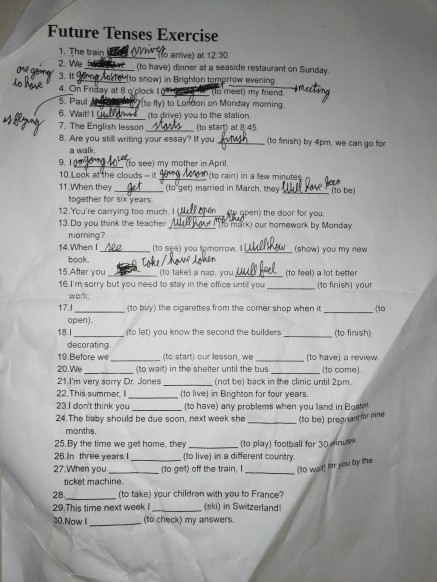 Future Tenses Exercise
1. The train arrives (to arrive) at 12:30.
are going to have
2. We (to have) dinner at a seaside restaurant on Sunday.
3. It going to snow (to snow) in Brighton tomorrow evening.
4. On Friday at 8 o'clock I (to meet) my friend. meeting
is flying
5. Paul (to fly) to London on Monday morning.
6. Wait! I will drive (to drive) you to the station.
7. The English lesson starts (to start) at 8:45.
8. Are you still writing your essay? If you finish (to finish) by 4pm, we can go for
a walk.
9. I am going to see (to see) my mother in April.
10. Look at the clouds – it going to rain (to rain) in a few minutes.
11. When they get (to get) married in March, they will have been (to be)
together for six years.
12. You're carrying too much. I will open (to open) the door for you.
13. Do you think the teacher will have marked (to mark) our homework by Monday
morning?
14. When I see (to see) you tomorrow, I will show (show) you my new
book.
15. After you take/have taken (to take) a nap, you will feel (to feel) a lot better
16. I'm sorry but you need to stay in the office until you ________ (to finish) your
work.
17. I ________ (to buy) the cigarettes from the corner shop when it ________ (to
open).
18. I ________ (to let) you know the second the builders ________ (to finish)
decorating.
19. Before we ________ (to start) our lesson, we ________ (to have) a review.
20. We ________ (to wait) in the shelter until the bus ________ (to come).
21. I'm very sorry Dr. Jones ________ (not be) back in the clinic until 2pm.
22. This summer, I ________ (to live) in Brighton for four years.
23. I don't think you ________ (to have) any problems when you land in Boston.
24. The baby should be due soon, next week she ________ (to be) pregnant for nine
months.
25. By the time we get home, they ________ (to play) football for 30 minutes.
26. In three years I ________ (to live) in a different country.
27. When you ________ (to get) off the train, I ________ (to wait) for you by the
ticket machine.
28. ________ (to take) your children with you to France?
29. This time next week I ________ (ski) in Switzerland!
30. Now I ________ (to check) my answers.